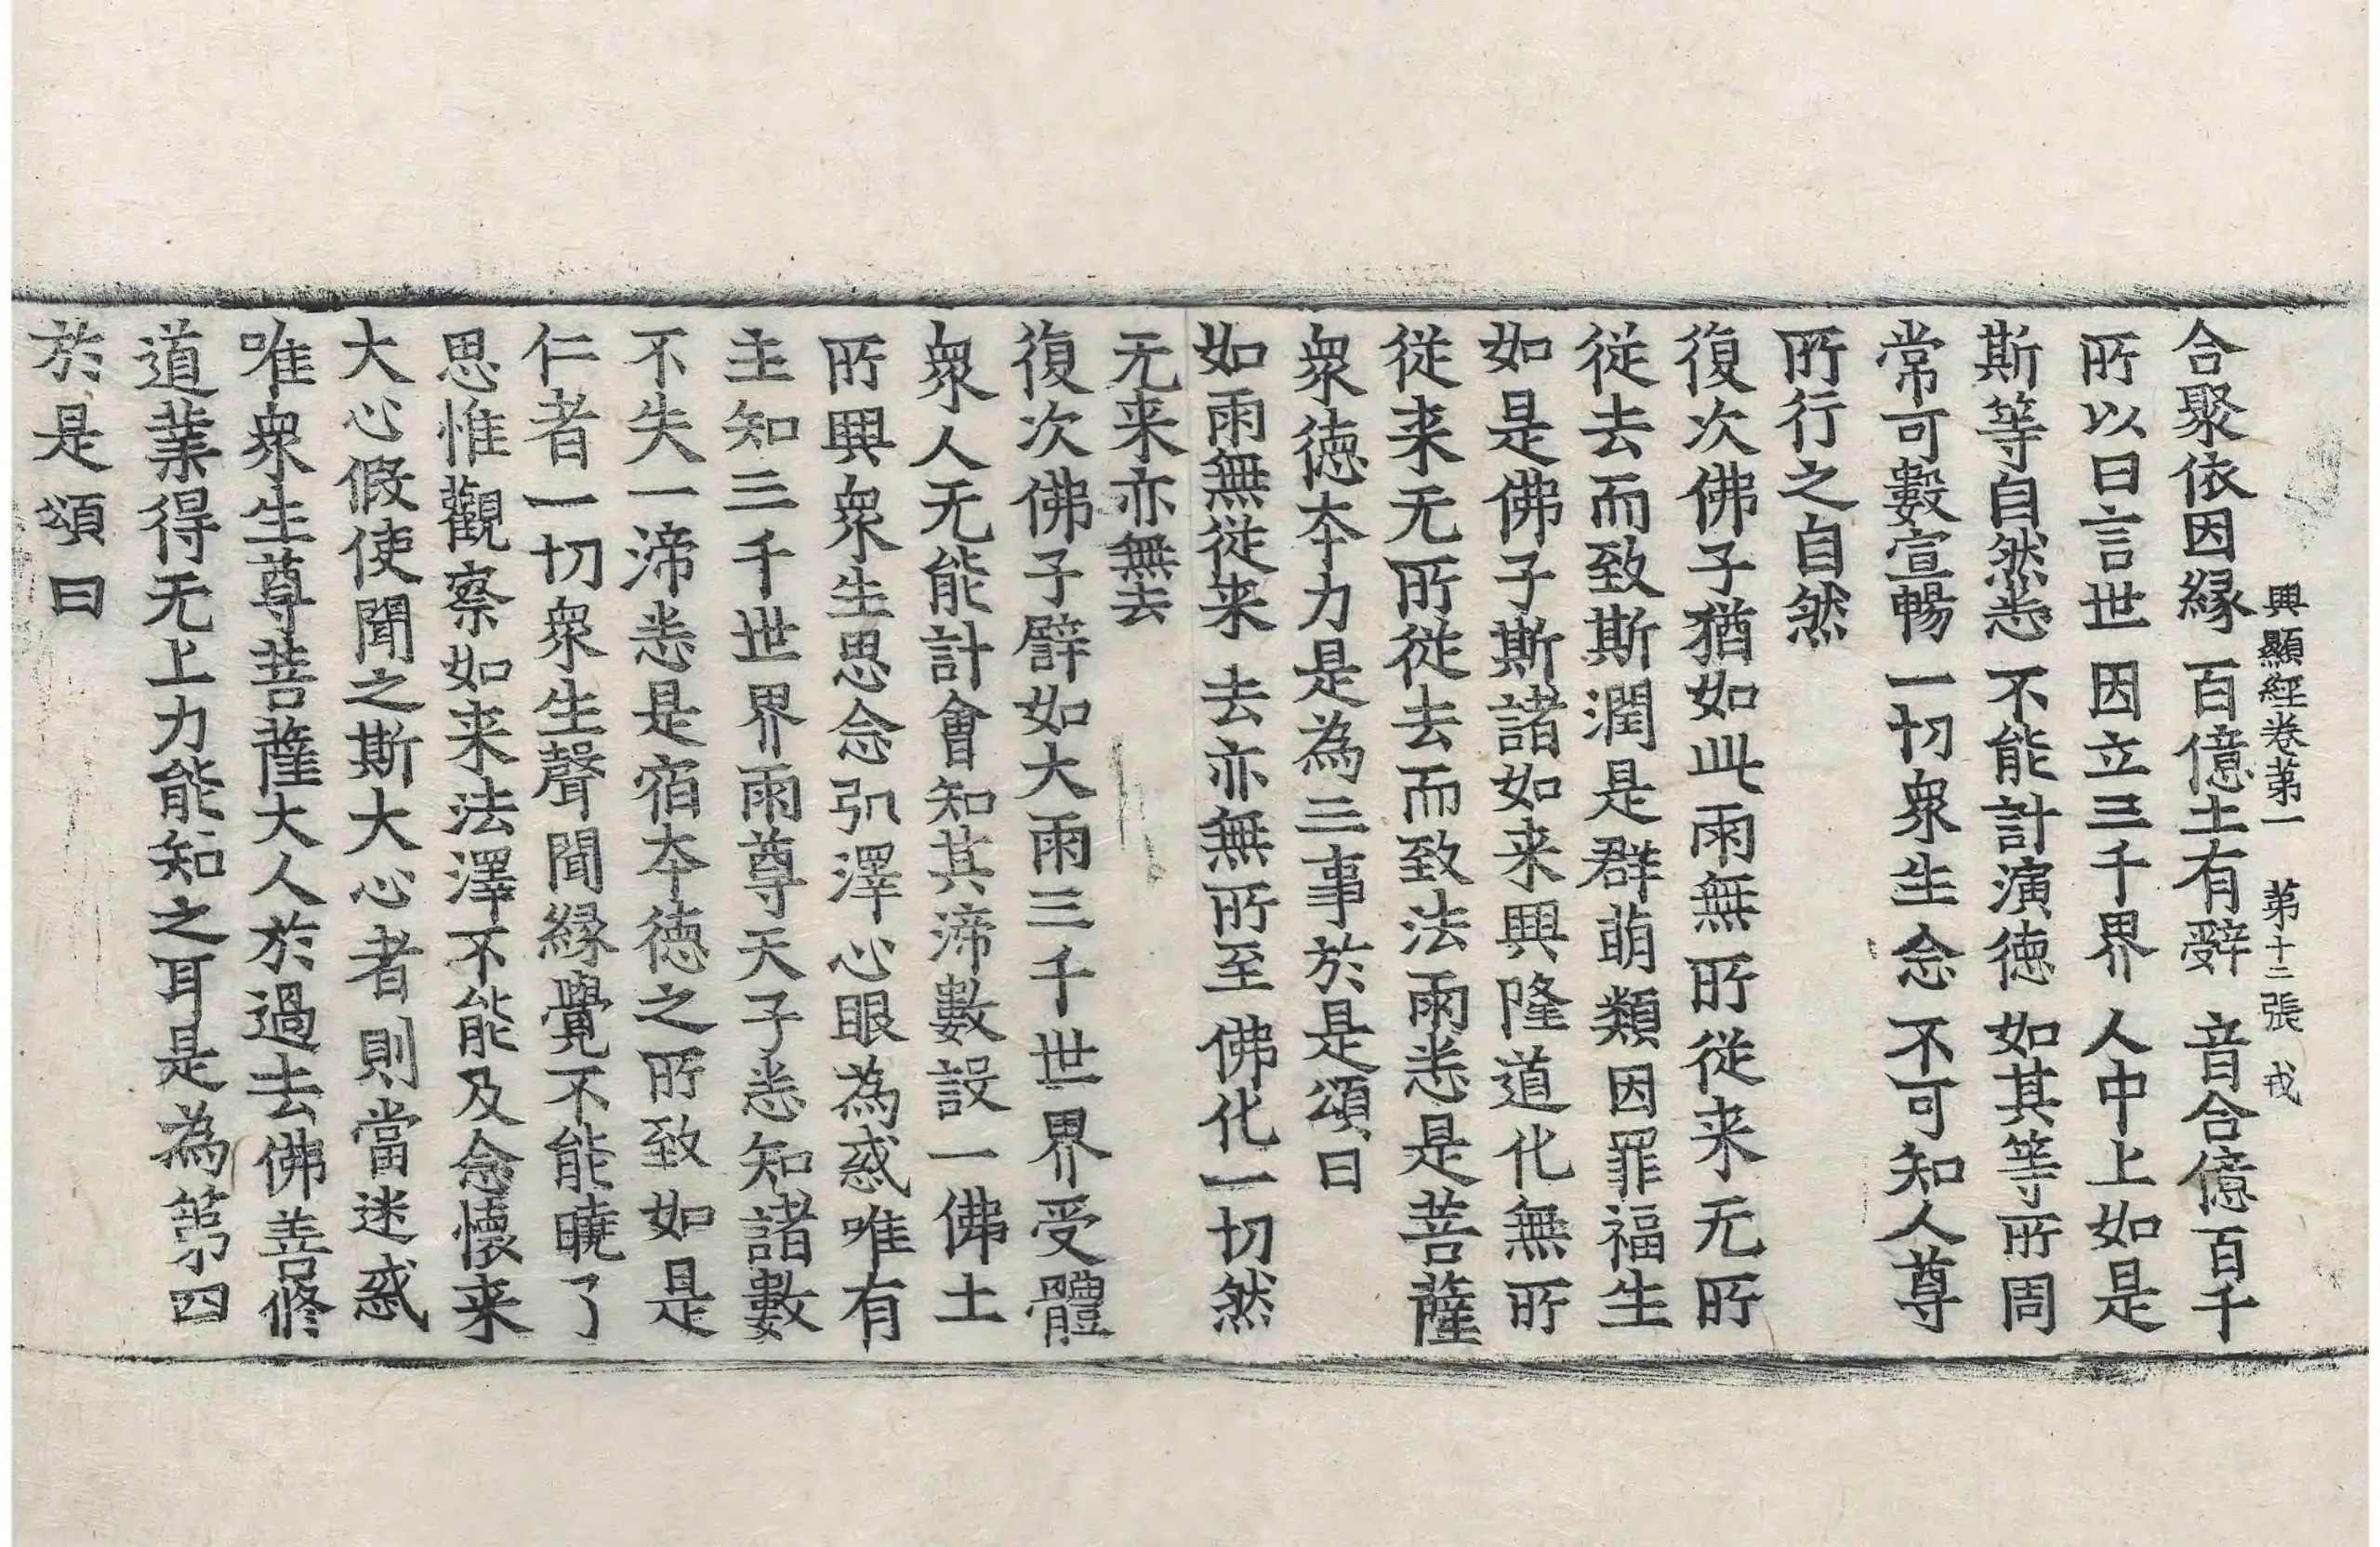 興顯經卷第一　第十二張　戎
合聚依因緣　百億土有辭　音合億百千
所以曰言世　因立三千界　人中上如是
斯等自然悉　不能計演德　如其等所周
常可數宣暢　一切衆生念　不可知人尊
所行之自然
復次佛子猶如此雨無所從来无所
從去而致斯潤是群萌類因罪福生
如是佛子斯諸如来興隆道化無所
從来无所從去而致法雨悉是菩薩
衆德本力是為三事於是頌曰
如雨無從来　去亦無所至　佛化一切然
无来亦無去
復次佛子譬如大雨三千世界受體
衆人无能計會知其渧數設一佛土
所興衆生思念弘澤心眼為惑唯有
主知三千世界雨尊天子悉知諸數
不失一渧悉是宿本德之所致如是
仁者一切衆生聲聞緣覺不能曉了
思惟觀察如来法澤不能及念懷来
大心假使聞之斯大心者則當迷惑
唯衆生尊菩薩大人於過去佛善修
道業得无上力能知之耳是為第四
於是頌曰